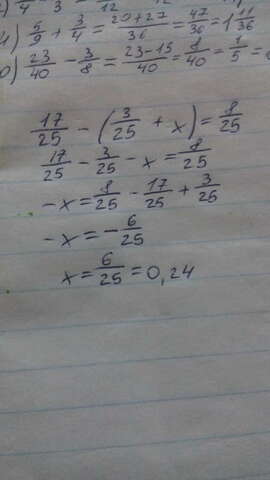 5/9 + 3/4 = (20+27)/36 = 47/36 = 1 11/36
23/40 - 3/8 = (23-15)/40 = 8/40 = 1/5 =
17/25 - (3/25 + x) = 8/25
17/25 - 3/25 - x = 8/25
-x = 8/25 - 17/25 + 3/25
-x = - 6/25
x = 6/25 = 0,24